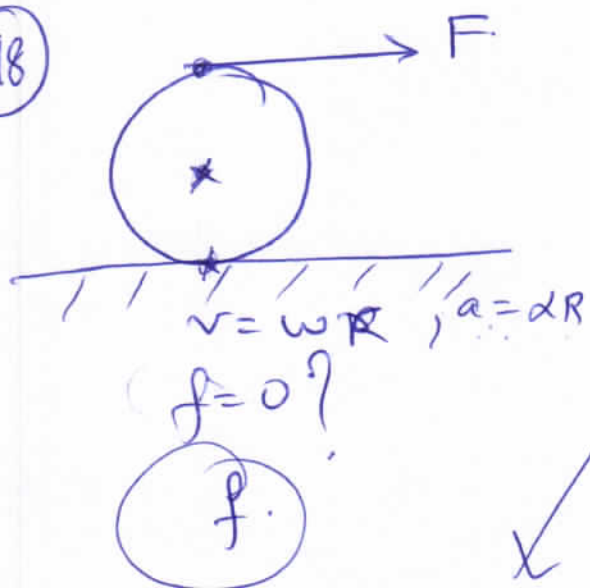 18
F.
v = ωR , a = αR
f = 0 ?
f.